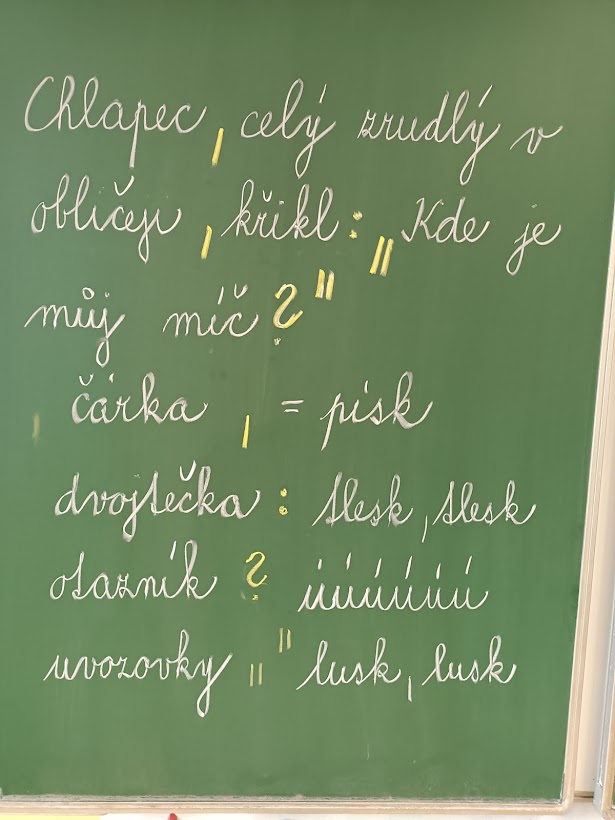 Chlapec, celý zrudlý v
obličeji, křikl: „Kde je
můj míč?"
čárka , = písk
dvojtečka : tlesk, tlesk
otazník ? úúúúúú
uvozovky „ " lusk, lusk